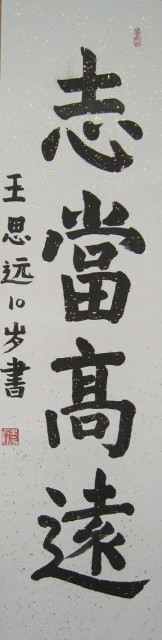 志當髙遠
王思远10岁書